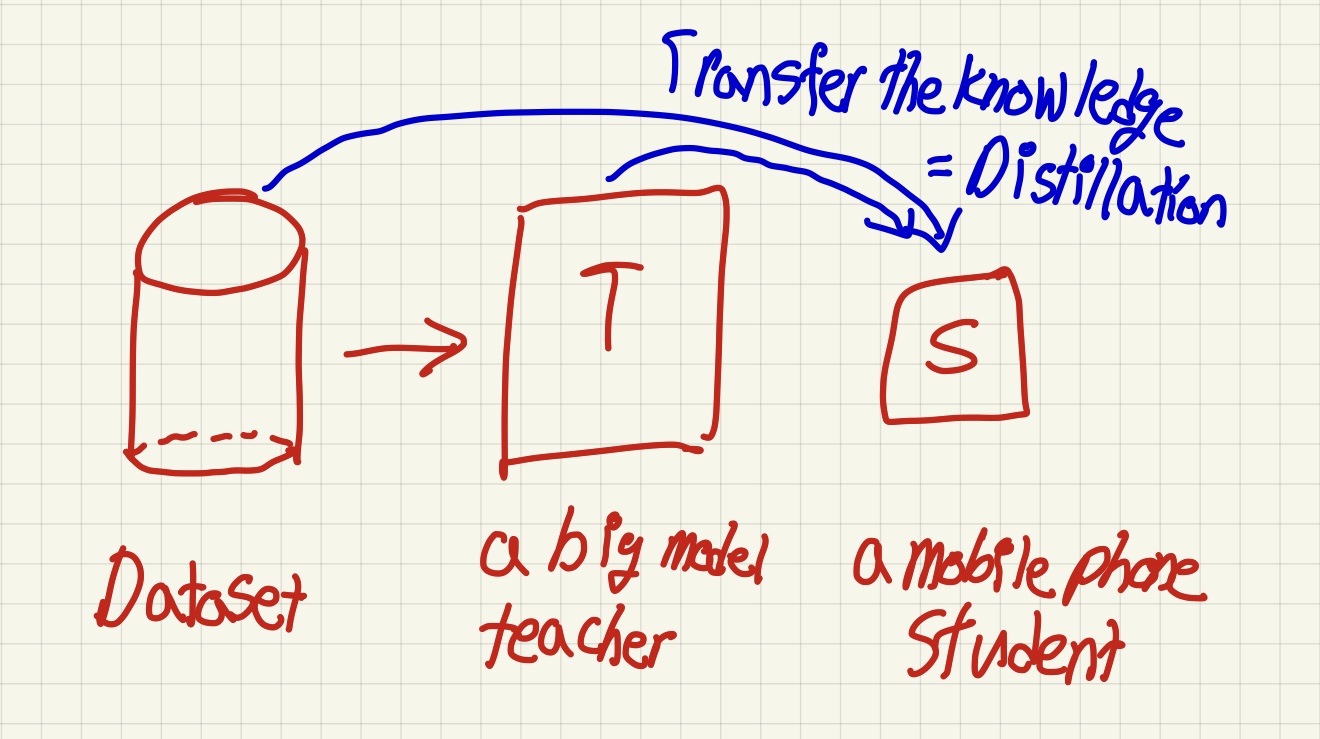 Transfer the knowledge
= Distillation
T
S
Dataset
a big model
teacher
a mobile phone
student